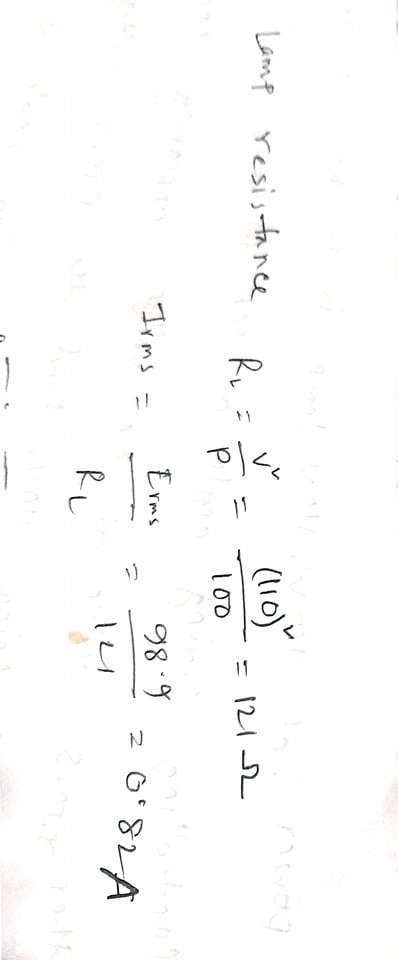 Lamp resistance R_L = V²/P = (110)²/100 = 121 Ω
Irms = Erms/R_L = 98.9/121 = 0.82A